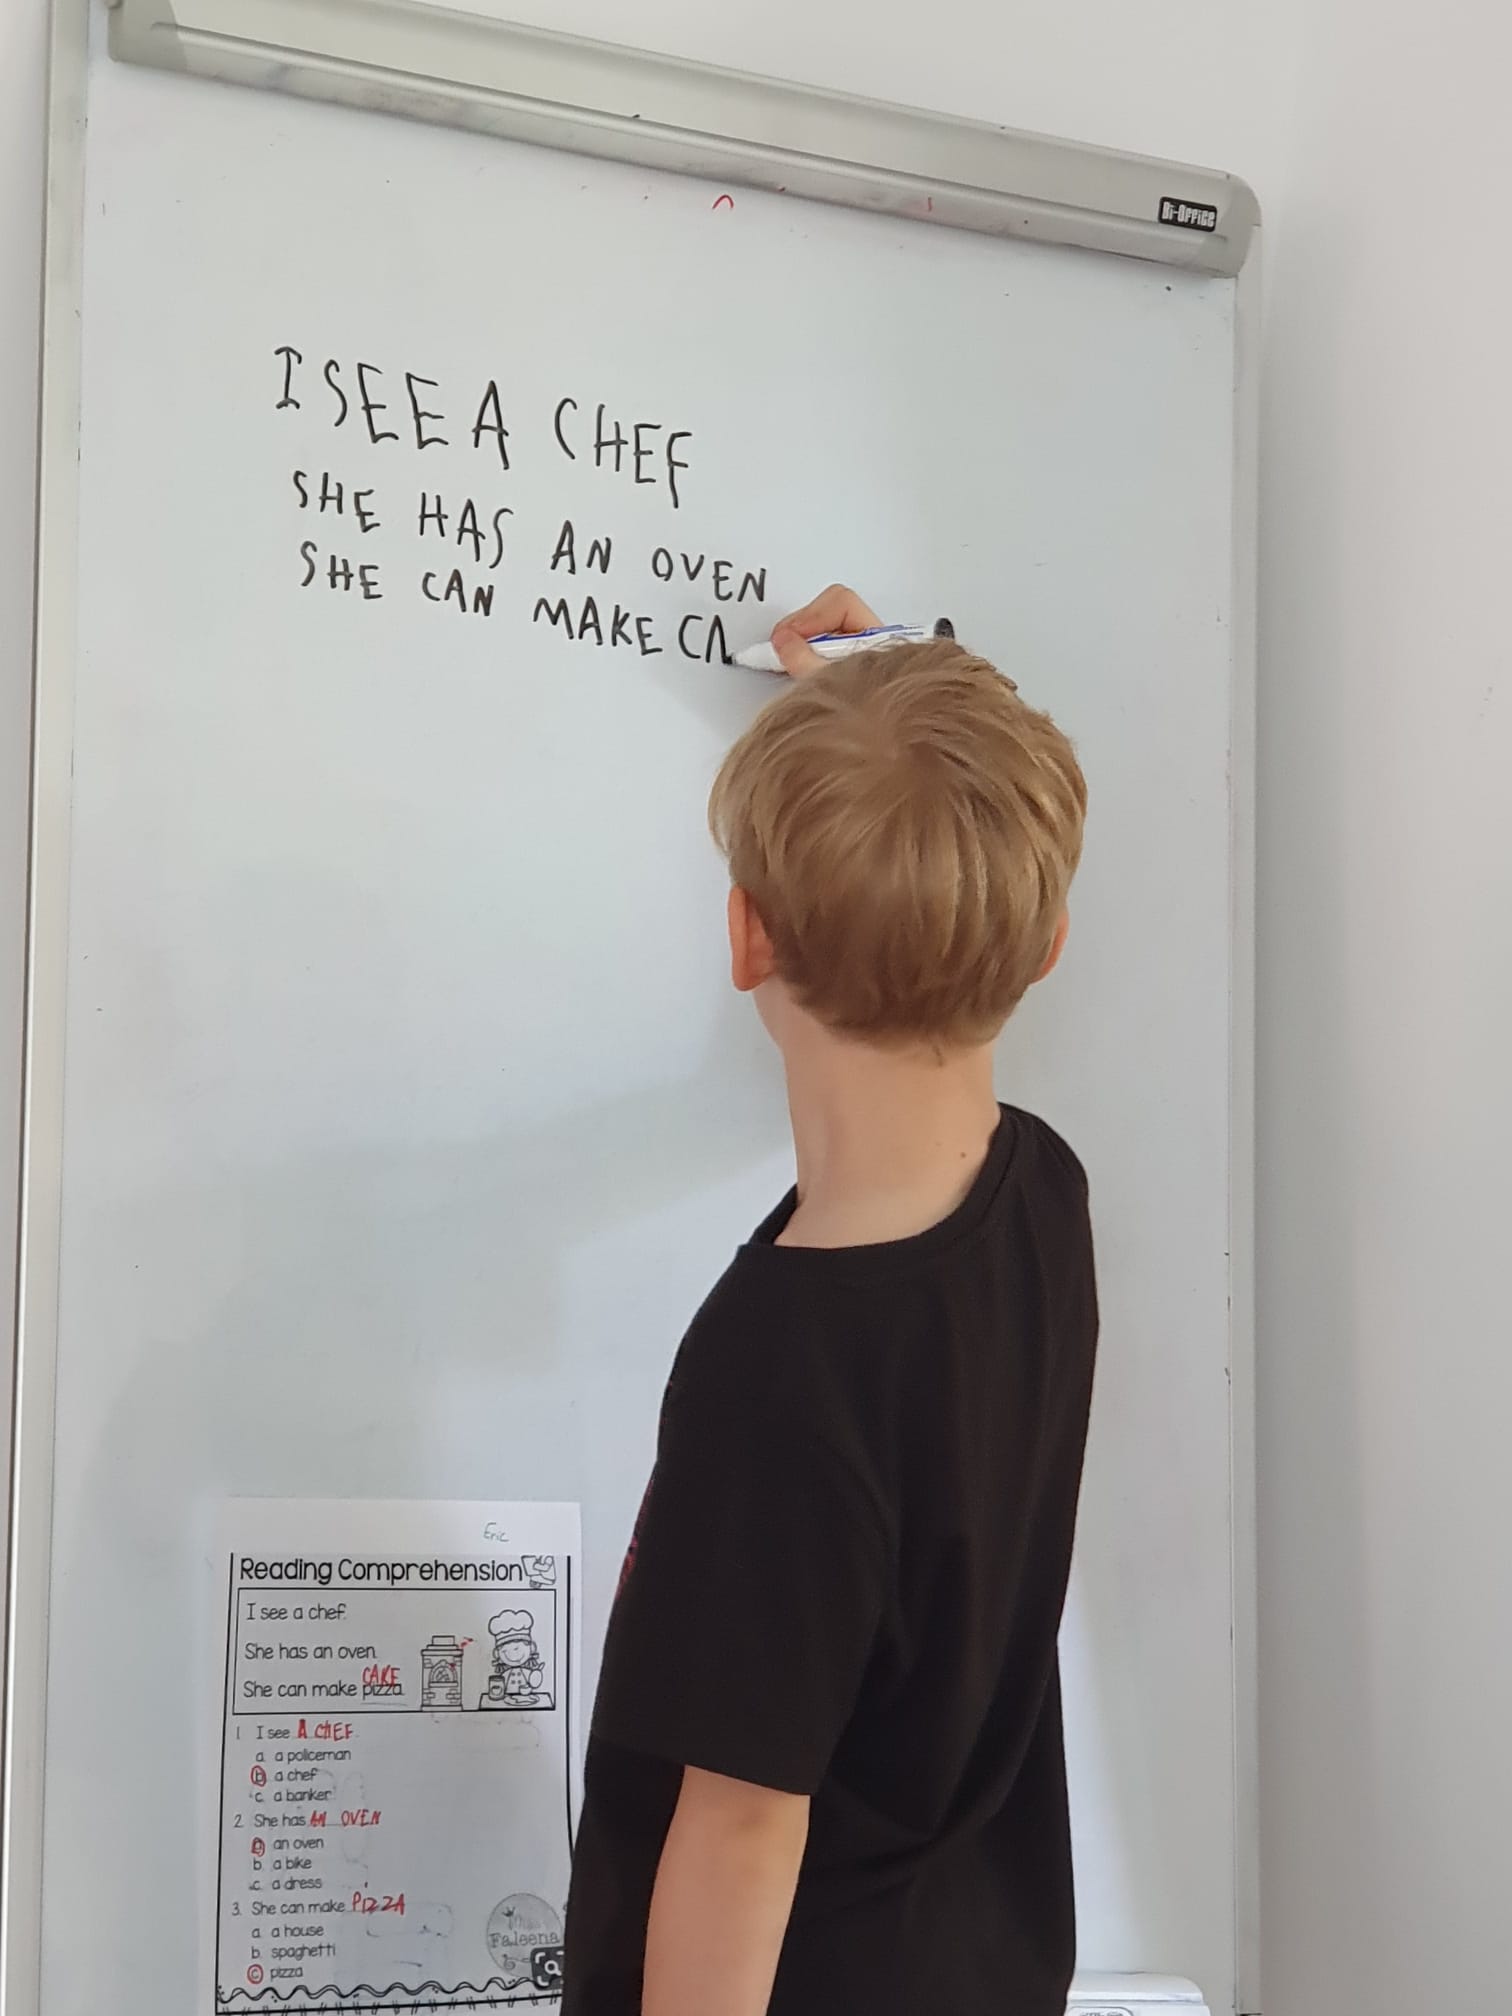 Bi-Office
I SEE A CHEF
SHE HAS AN OVEN
SHE CAN MAKE CA
Eric
Reading Comprehension
I see a chef.
She has an oven.
CAKE
She can make pizza.
1. I see A CHEF.
a. a policeman
b. a chef
c. a banker
2. She has AN OVEN
a. an oven
b. a bike
c. a dress
3. She can make PIZZA
a. a house
b. spaghetti
c. pizza
Faleena